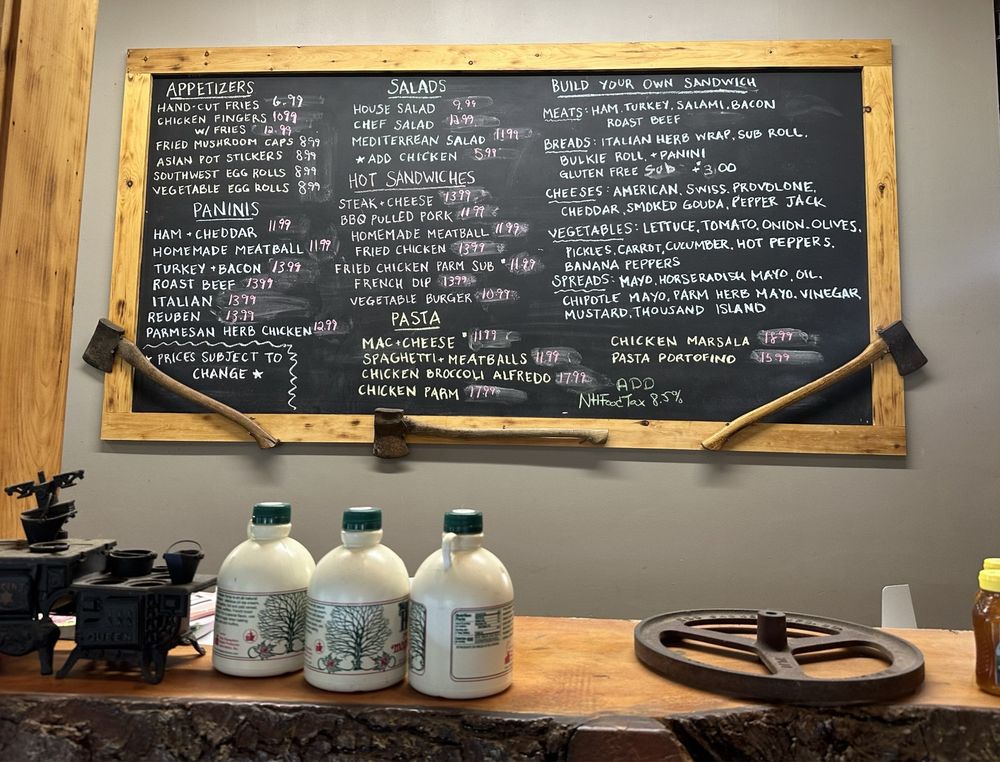 APPETIZERS
HAND-CUT FRIES 6.99
CHICKEN FINGERS 10.99
W/ FRIES 12.99
FRIED MUSHROOM CAPS 8.99
ASIAN POT STICKERS 8.99
SOUTHWEST EGG ROLLS 8.99
VEGETABLE EGG ROLLS 8.99
PANINIS
HAM + CHEDDAR 11.99
HOMEMADE MEATBALL 11.99
TURKEY + BACON 13.99
ROAST BEEF 13.99
ITALIAN 13.99
REUBEN 13.99
PARMESAN HERB CHICKEN 12.99
★ PRICES SUBJECT TO
CHANGE ★
SALADS
HOUSE SALAD 9.99
CHEF SALAD 12.99
MEDITERREAN SALAD 11.99
★ ADD CHICKEN 5.99
HOT SANDWICHES
STEAK + CHEESE 13.99
BBQ PULLED PORK 11.99
HOMEMADE MEATBALL 11.99
FRIED CHICKEN 13.99
FRIED CHICKEN PARM SUB 11.99
FRENCH DIP 13.99
VEGETABLE BURGER 10.99
PASTA
MAC + CHEESE 11.99
SPAGHETTI + MEATBALLS 11.99
CHICKEN BROCCOLI ALFREDO 17.99
CHICKEN PARM 17.99
BUILD YOUR OWN SANDWICH
MEATS: HAM, TURKEY, SALAMI, BACON
ROAST BEEF
BREADS: ITALIAN HERB WRAP, SUB ROLL,
BULKIE ROLL, + PANINI
GLUTEN FREE Sub + 3.00
CHEESES: AMERICAN, SWISS, PROVOLONE,
CHEDDAR, SMOKED GOUDA, PEPPER JACK
VEGETABLES: LETTUCE, TOMATO, ONION, OLIVES,
PICKLES, CARROT, CUCUMBER, HOT PEPPERS,
BANANA PEPPERS
SPREADS: MAYO, HORSERADISH MAYO, OIL,
CHIPOTLE MAYO, PARM HERB MAYO, VINEGAR
MUSTARD, THOUSAND ISLAND
CHICKEN MARSALA 18.99
PASTA PORTOFINO 15.99
ADD
NH Food Tax 8.5%
QUEEN